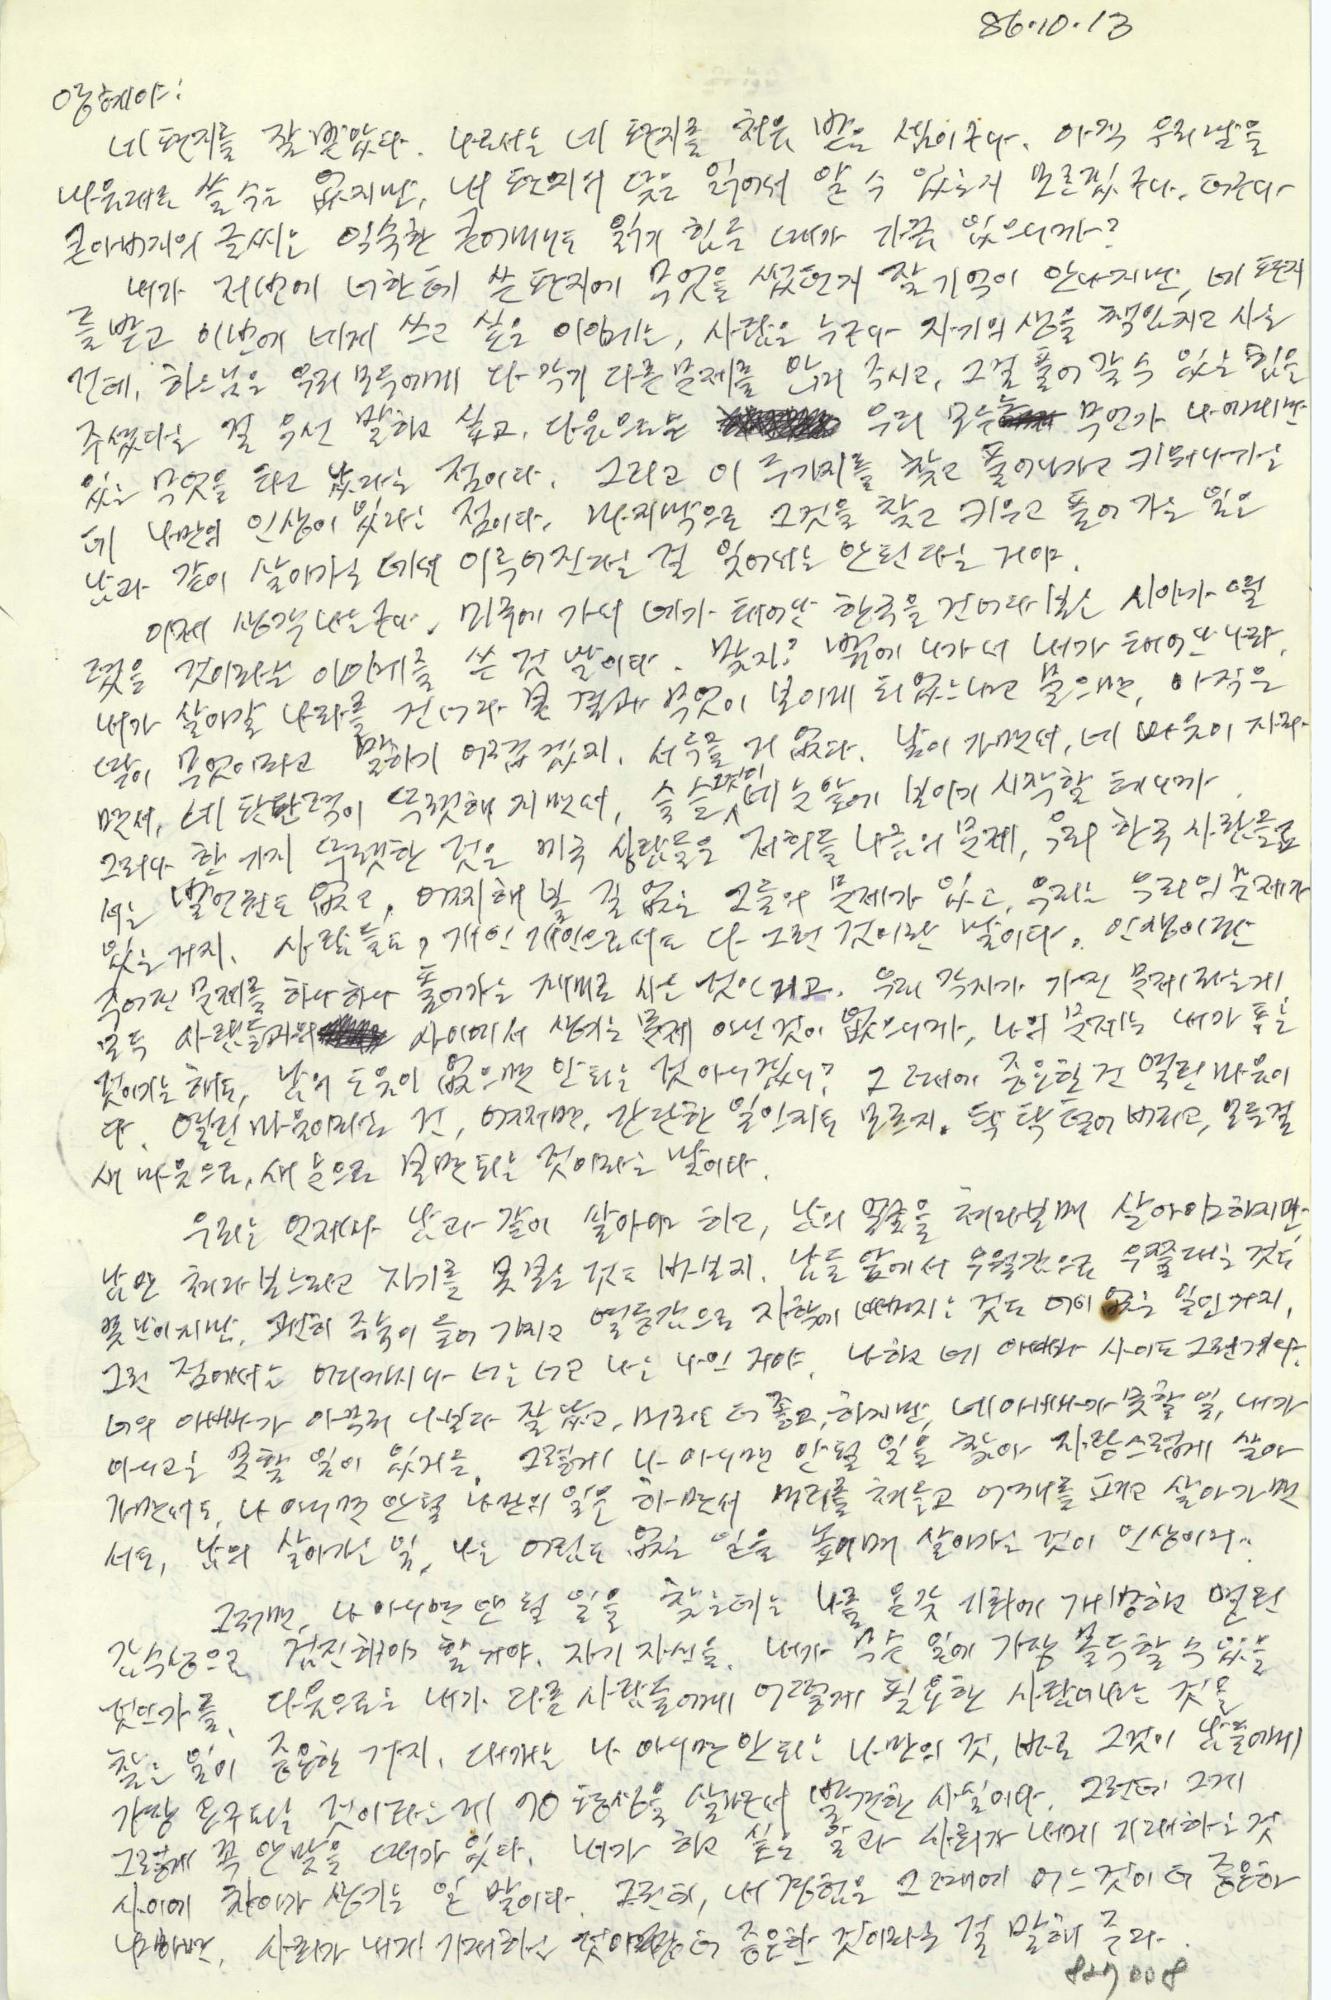 86.10.13
영혜야:
네 편지를 잘 받았다. 나로서는 네 편지를 처음 받은 셈이구나. 아직 우리 말을
마음대로 쓸 수는 없지만, 내 편지의 뜻은 읽어서 알 수 있는지 모르겠구나. 더구나
큰아버지의 글씨는 익숙한 큰어머니도 읽기 힘들 때가 가끔 있으니까?
내가 저번에 너한테 쓴 편지에 무엇을 썼던지 잘 기억이 안나지만, 네 편지
를 받고 이번에 네게 쓰고 싶은 이야기는, 사람은 누구나 자기의 생을 책임지고 사는
건데, 하느님은 우리 모두에게 다 각기 다른 문제를 안겨 주시고, 그걸 풀어 갈 수 있는 힘을
주셨다는 걸 우선 말하고 싶고, 다음으로는 우리 모두 무언가 나에게만
있는 무엇을 타고 났다는 점이다. 그리고 이 두가지를 찾고 풀어나가고 키워나가는
데 나만의 인생이 있다는 점이다. 마지막으로 그것을 찾고 키우고 풀어 가는 일은
남과 같이 살아가는 데서 이루어진다는 걸 잊어서는 안된다는 거야.
이제 생각나는구나. 미국에 가서 네가 태어난 한국을 건너다 보는 시야가 열
렸을 것이라는 이야기를 쓴 것 말이다. 맞지? 밖에 나가서 내가 태어난 나라,
내가 살아갈 나라를 건너다 본 결과 무엇이 보이게 되었느냐고 물으면, 아직은
딱이 무엇이라고 말하기 어렵겠지. 서두를 거 없다. 날이 가면서, 네 마음이 자라
면서, 네 판단력이 뚜렷해 지면서, 슬슬 그것이 네 눈앞에 보이기 시작할 테니까.
그러나 한 가지 뚜렷한 것은 미국 사람들은 저희들 나름의 문제, 우리 한국 사람들로
서는 발언권도 없고, 어찌해 볼 길 없는 그들의 문제가 있고, 우리는 우리의 문제가
있는 거지. 사람들도, 개인 개인으로서도 다 그런 것이란 말이다. 인생이란
주어진 문제를 하나하나 풀어가는 재미로 사는 것이고. 우리 각자가 가진 문제라는게
모두 사람들과의 사이에서 생기는 문제 아닌 것이 없으니까, 나의 문제는 내가 푸는
것이기는 해도, 남의 도움이 없으면 안 되는 것 아니겠니? 그 때에 중요한 건 열린 마음이
다. 열린 마음이라는 건, 어쩌면, 간단한 일인지도 모르지. 툭툭 털어 버리고, 모든걸
새 마음으로, 새 눈으로 보면 되는 것이라는 말이다.
우리는 언제나 남과 같이 살아야 하고, 남의 얼굴을 쳐다보며 살아야 하지만,
남만 쳐다 보느라고 자기를 못보는 것도 바보지. 남들 앞에서 우월감으로 우쭐대는 것도
못난이지만, 괜히 주눅이 들어 가지고 열등감으로 자학에 빠지는 것도 어이 없는 일인 거지,
그런 점에서는 어디까지나 너는 너고 나는 나인 거야. 나하고 네 아빠와 사이도 그런거다.
너의 아빠가 아무리 나보다 잘났고, 머리도 더 좋고, 하지만, 네 아빠가 못할 일, 내가
아니고는 못할 일이 있거든. 그렇게 나 아니면 안될 일을 찾아 자랑스럽게 살아
가면서도, 나 아니면 안될 나만의 일을 하면서 머리를 쳐들고 어깨를 펴고 살아가면
서도, 남의 살아가는 일, 나는 어림도 없는 일을 높이며 살아가는 것이 인생이다.
그러면, 나 아니면 안 될 일을 찾는데는 나를 온갖 기회에 개방하고 열린
감수성으로 점검해야 할 거야. 자기 자신을. 내가 무슨 일에 가장 몰두할 수 있을
것인가를. 다음으로는 내가 다른 사람들에게 어떻게 필요한 사람이냐는 것을
찾는 일이 중요한 거지. 대개는 나 아니면 안되는 나만의 것, 바로 그것이 남들에게
가장 요구되는 것이라는게 70 평생을 살면서 발견한 사실이다. 그런데 그게
그렇게 꼭 안 맞을 때가 있다. 내가 하고 싶은 일과 사회가 내게 기대하는 것
사이에 차이가 생기는 일 말이다. 그런데, 내 경험은 그 때에 어느 것이 더 중요한가
하면, 사회가 내게 기대하는 것이 더 중요한 것이라는 걸 말해 준다.
827008